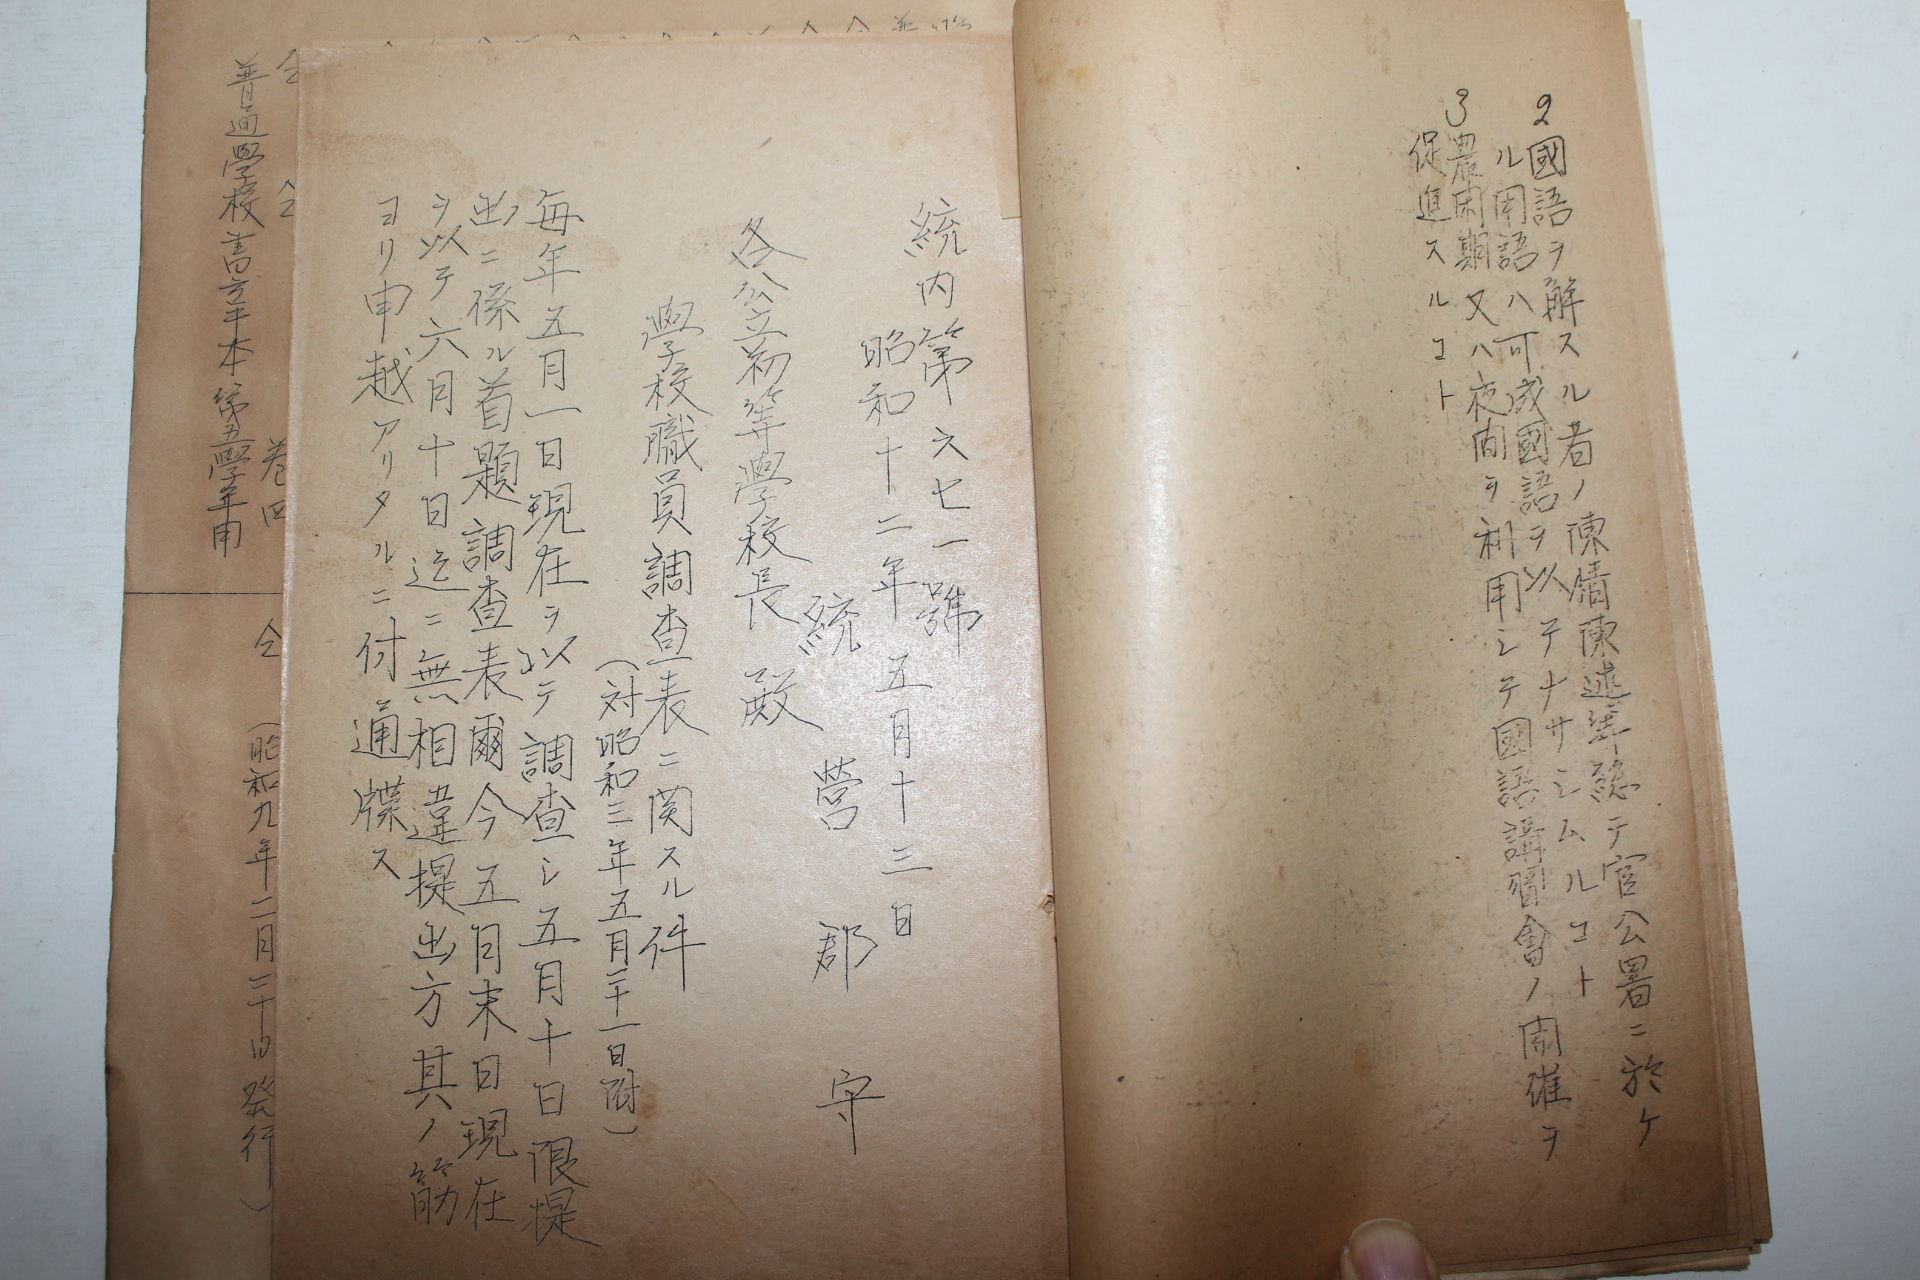 2 國語ヲ解スル者ノ陳情陳述等總テ官公署ニ於ケ
ル用語ハ可成國語ヲ以テナサシムルコト
3 農閑期又ハ夜間ヲ利用シテ國語講習會ノ開催ヲ
促進スルコト
統內第六七一號
昭和十二年五月十三日
統營郡守
各公立初等學校長殿
學校職員調査表ニ関スル件
(対昭和三年五月二十一日附)
毎年五月一日現在ヲ以テ調査シ五月十日限提
出ニ係ル首題調査表爾今五月末日現在
ヲ以テ六月十日迄ニ無相違提出方其ノ筋
ヨリ申越アリタルニ付通牒ス
仝 仝 卷四 仝 (昭和九年二月二十日発行)
普通學校書方手本第五學年用